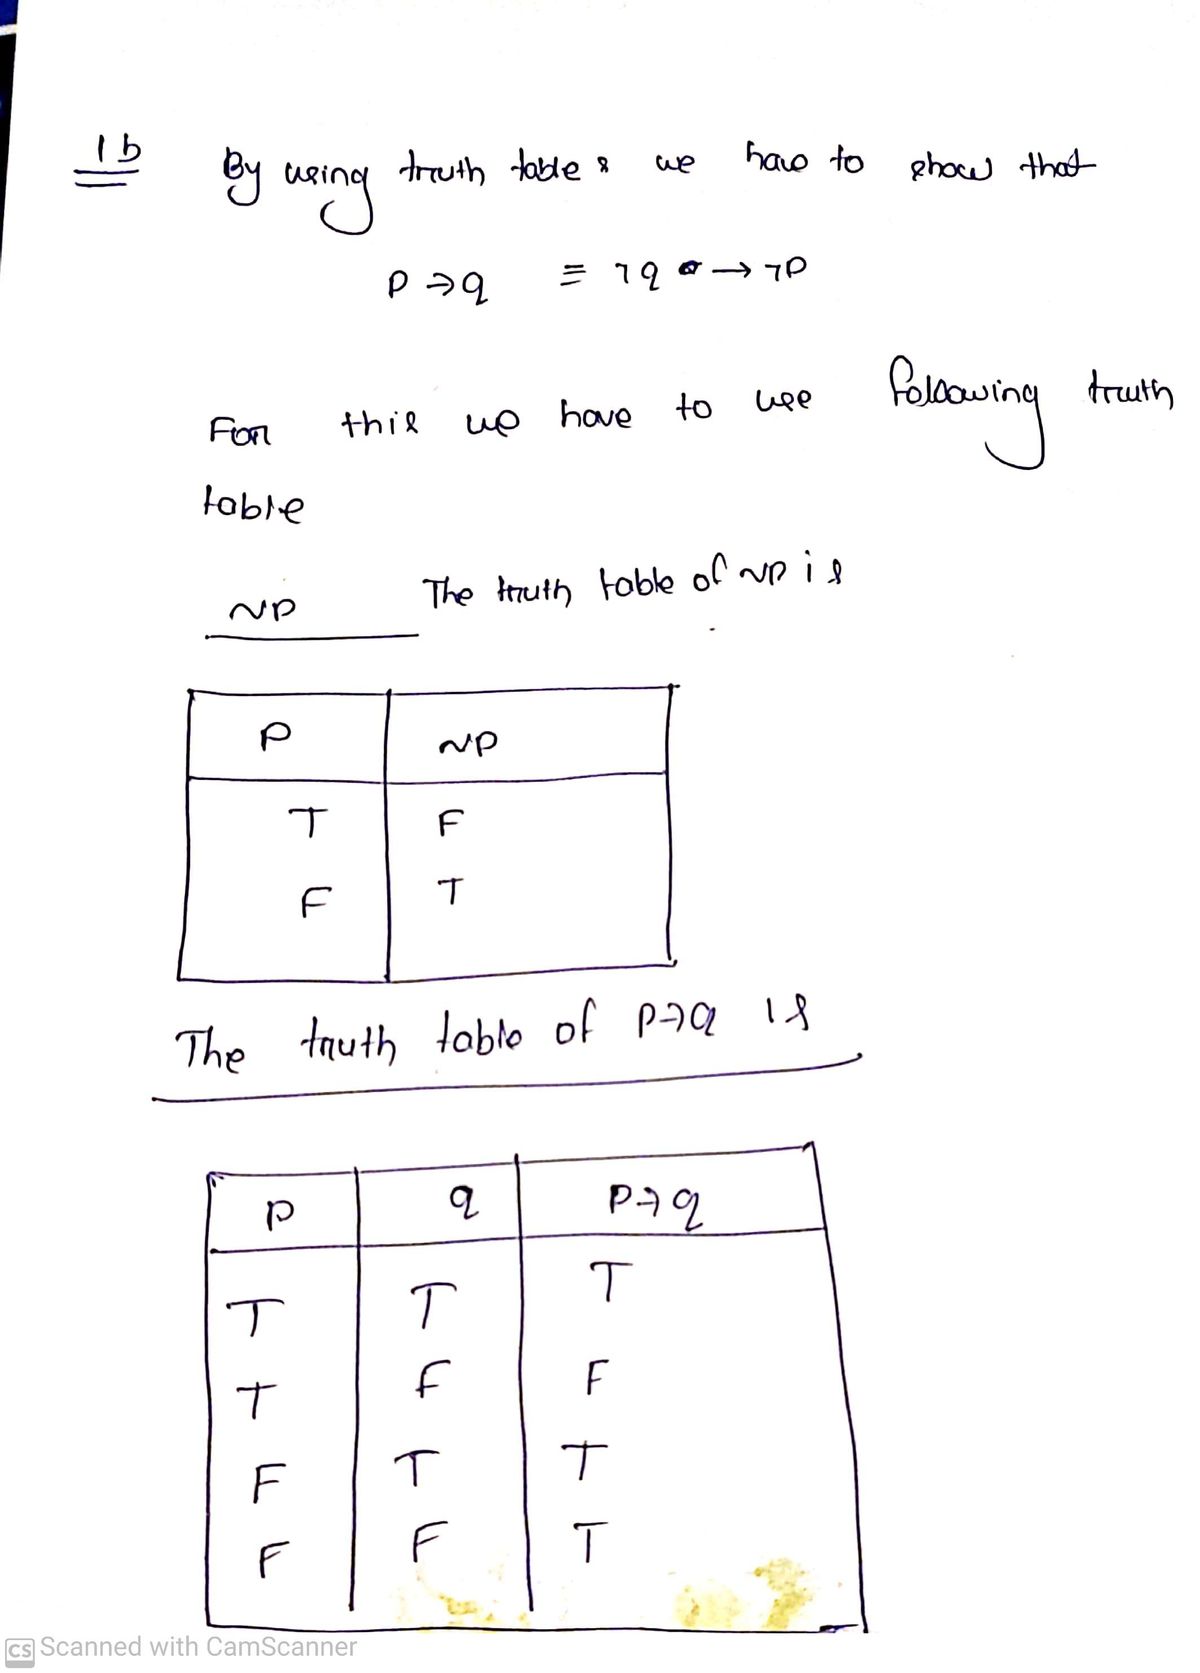 1b
By using truth tables we have to show that
P → q ≡ ¬q → ¬P
For this we have to use following truth
table
~P The truth table of ~P is
P ~P
T F
F T
The truth table of P→q is
P q P→q
T T T
T F F
F T T
F F T
CS Scanned with CamScanner